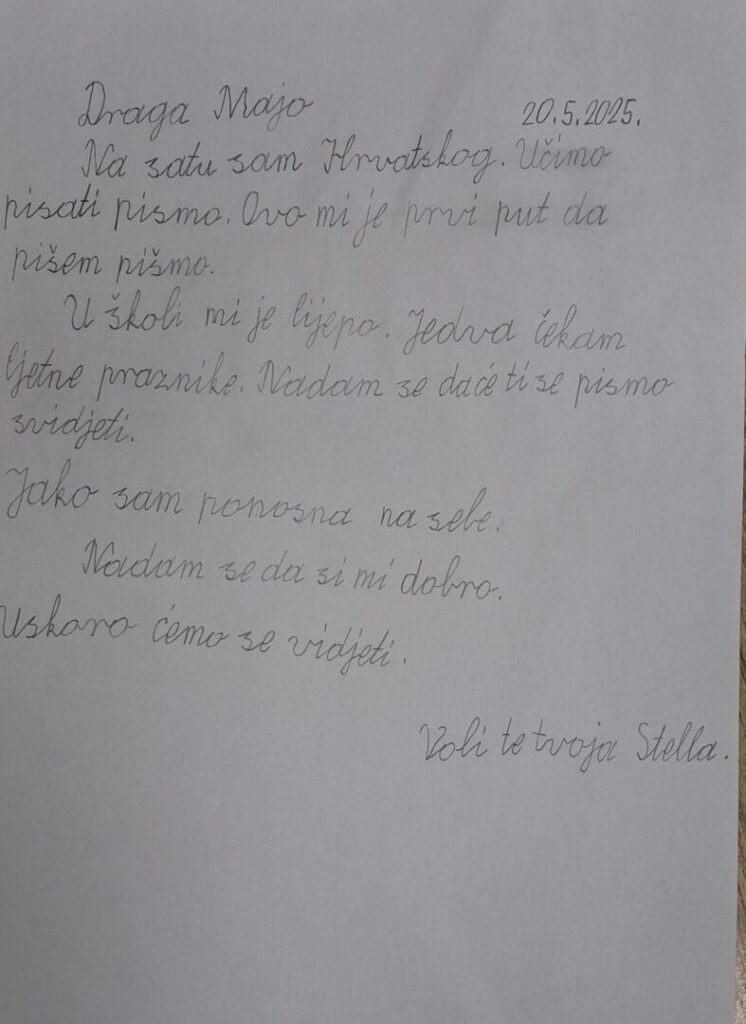 Draga Majo 20.5.2025.
Na satu sam Hrvatskog. Učimo
pisati pismo. Ovo mi je prvi put da
pišem pišmo.
U školi mi je lijepo. Jedva čekam
ljetne praznike. Nadam se daće ti se pismo
svidjeti.
Jako sam ponosna na sebe.
Nadam se da si mi dobro.
Uskoro ćemo se vidjeti.
Voli te tvoja Stella.